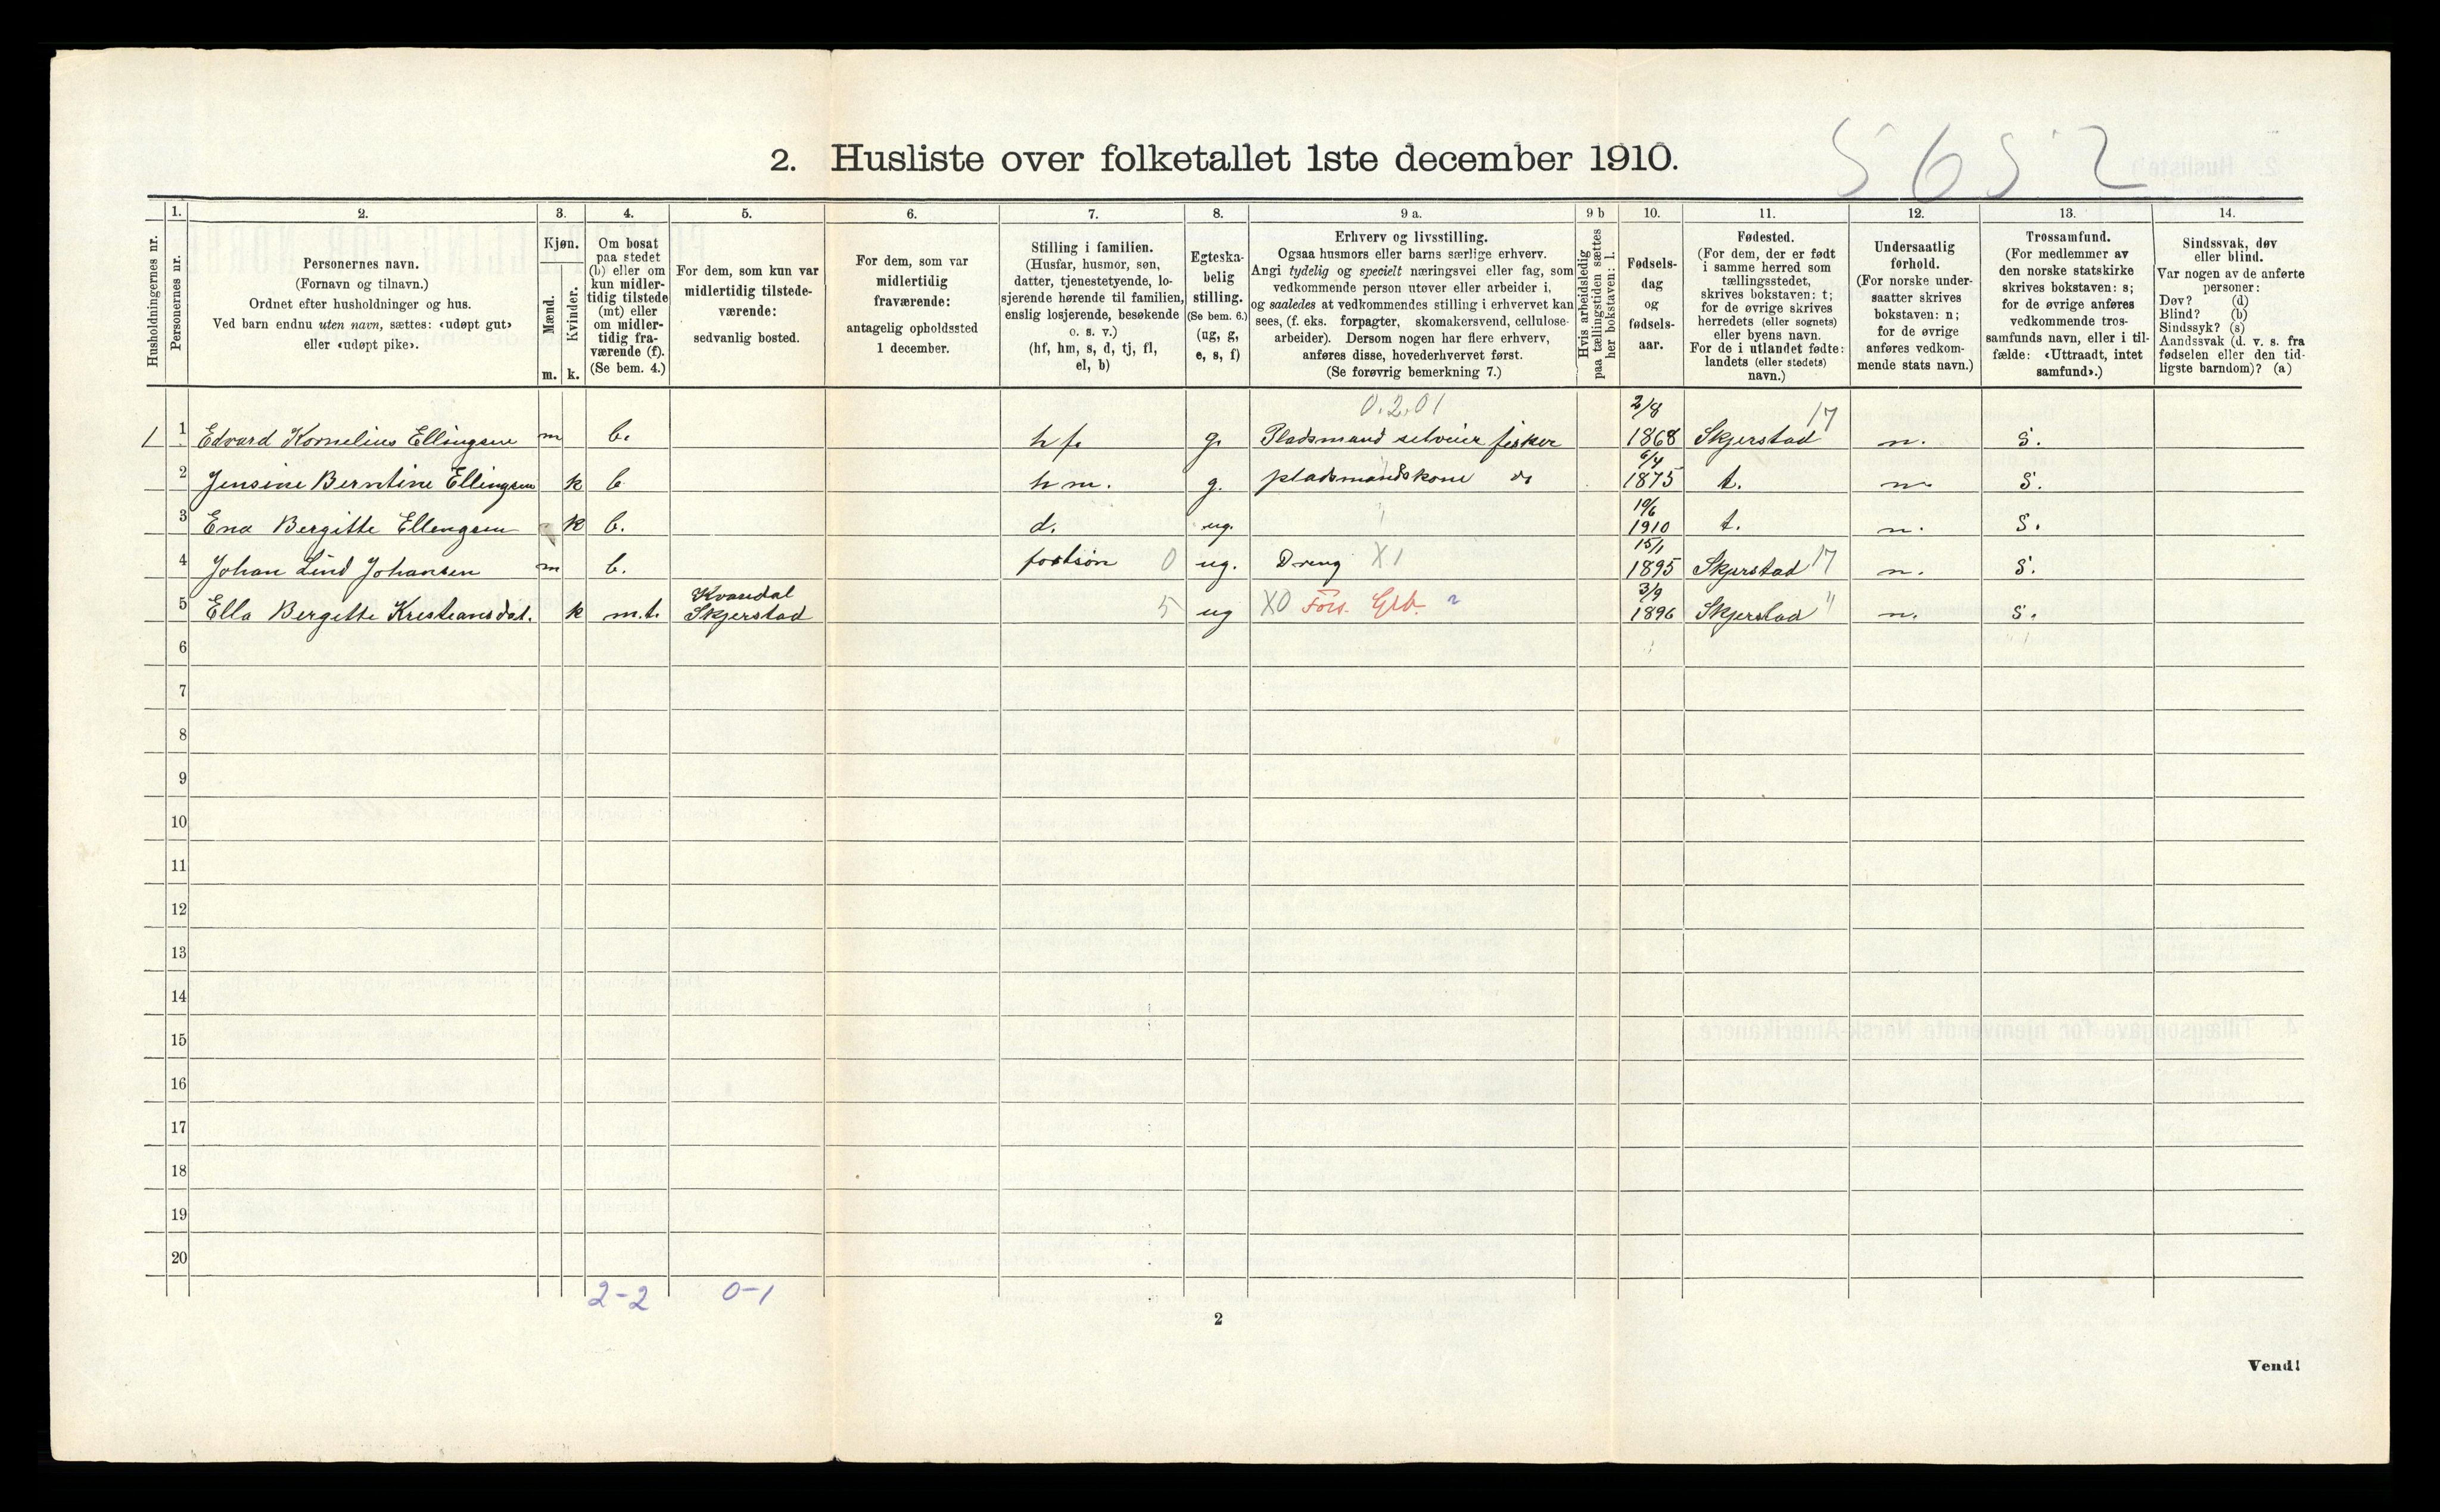 5652
2. Husliste over folketallet 1ste december 1910.
Husholdningernes nr.
1.
Personernes nr.
2.
Personernes navn.
(Fornavn og tilnavn.)
Ordnet efter husholdninger og hus.
Ved barn endnu uten navn, sættes: «udøpt gut»
eller «udøpt pike».
3.
Kjøn.
Mænd.
Kvinder.
m. k.
4.
Om bosat
paa stedet
(b) eller om
kun midler-
tidig tilstede
(mt) eller
om midler-
tidig fra-
værende (f).
(Se bem. 4.)
5.
For dem, som kun var
midlertidig tilstede-
værende:
sedvanlig bosted.
6.
For dem, som var
midlertidig
fraværende:
antagelig opholdssted
1 december.
7.
Stilling i familien.
(Husfar, husmor, søn,
datter, tjenestetyende, lo-
sjerende hørende til familien,
enslig losjerende, besøkende
o. s. v.)
(hf, hm, s, d, tj, fl,
el, b)
8.
Egteska-
belig
stilling.
(Se bem. 6.)
(ug, g,
e, s, f)
9 a.
Erhverv og livsstilling.
Ogsaa husmors eller barns særlige erhverv.
Angi tydelig og specielt næringsvei eller fag, som
vedkommende person utøver eller arbeider i,
og saaledes at vedkommendes stilling i erhvervet kan
sees, (f. eks. forpagter, skomakersvend, cellulose-
arbeider). Dersom nogen har flere erhverv,
anføres disse, hovederhvervet først.
(Se forøvrig bemerkning 7.)
9 b
Hvis arbeidsledig
paa tællingstiden sættes
her bokstaven: l.
10.
Fødsels-
dag
og
fødsels-
aar.
11.
Fødested.
(For dem, der er født
i samme herred som
tællingsstedet,
skrives bokstaven: t;
for de øvrige skrives
herredets (eller sognets)
eller byens navn.
For de i utlandet fødte:
landets (eller stedets)
navn.)
12.
Undersaatlig
forhold.
(For norske under-
saatter skrives
bokstaven: n;
for de øvrige
anføres vedkom-
mende stats navn.)
13.
Trossamfund.
(For medlemmer av
den norske statskirke
skrives bokstaven: s;
for de øvrige anføres
vedkommende tros-
samfunds navn, eller i til-
fælde: «Uttraadt, intet
samfund».)
14.
Sindssvak, døv
eller blind.
Var nogen av de anførte
personer:
Døv? (d)
Blind? (b)
Sindssyk? (s)
Aandssvak (d. v. s. fra
fødselen eller den tid-
ligste barndom)? (a)
0.2.01 2/8 17
1 1 Edvard Kornelius Ellingsen m b. hf. g. Pladsmand selveier fisker 1868 Skjerstad n. s.
6/4
2 Jensine Berntine Ellingsen k b g. hm. pladsmandskone do 1875 t. n. s.
10/6
3 Ena Bergitte Ellengsen k b. d. ug. 1910 t. n. s.
15/1
4 Johan Lind Johansen m b. fostsøn 0 ug. Dreng X1 1895 Skjerstad 17 n. s.
Kvandal 3/9
5 Ella Bergitte Kristiansdat. k m.t. Skjerstad 5 ug X0 Fors. 1896 Skjerstad " n. s.
6
7
8
9
10
11
12
13
14
15
16
17
18
19
20
2-2 0-1
2
Vend!